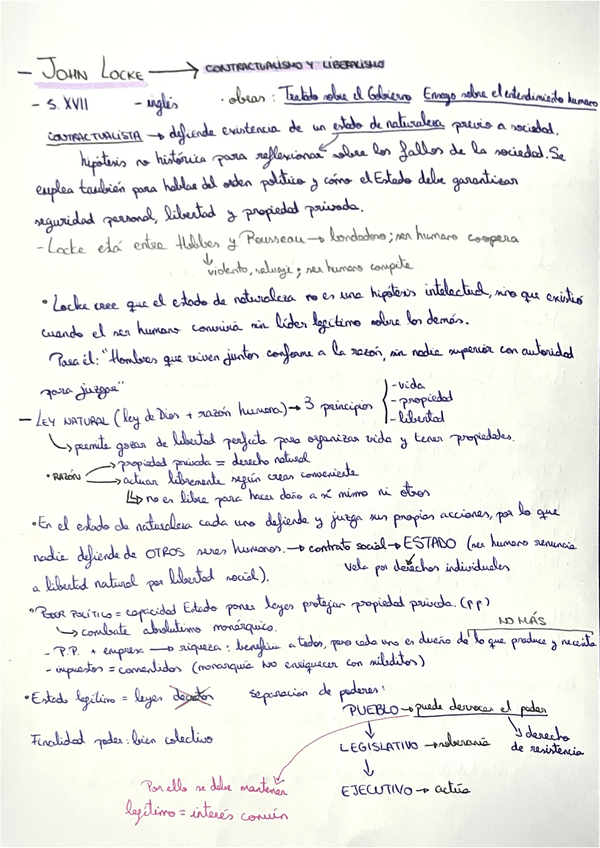 - JOHN LOCKE → CONTRACTUALISMO Y LIBERALISMO
- S. XVII - inglés · obras: Tratado sobre el Gobierno Ensayo sobre el entendimiento humano
CONTRACTUALISTA → defiende existencia de un estado de naturaleza previo a sociedad.
hipótesis no histórica para reflexionar sobre los fallos de la sociedad. Se
emplea también para hablar del orden político y cómo el Estado debe garantizar
seguridad personal, libertad y propiedad privada.
- Locke está entre Hobbes y Rousseau → bondadoso; ser humano coopera
violento, salvaje; ser humano compite
• Locke cree que el estado de naturaleza no es una hipótesis intelectual, sino que existió
cuando el ser humano convivía sin líder legítimo sobre los demás.
Para él: "Hombres que viven juntos conforme a la razón, sin nadie superior con autoridad
para juzgar"
- LEY NATURAL (ley de Dios + razón humana) → 3 principios { - vida
- propiedad
- libertad
↳ permite gozar de libertad perfecta para organizar vida y tener propiedades.
• RAZÓN → propiedad privada = derecho natural
→ actuar libremente según creas conveniente
↳ no es libre para hacer daño a sí mismo ni otros
• En el estado de naturaleza cada uno defiende y juzga sus propias acciones, por lo que
nadie defiende de OTROS seres humanos. → contrato social → ESTADO (ser humano renuncia
a libertad natural por libertad social). Vela por derechos individuales
• PODER POLÍTICO = capacidad Estado poner leyes protejan propiedad privada. (PP)
↳ combate absolutismo monárquico. NO MÁS
- P.P. + empresa → riqueza: beneficia a todos, pero cada uno es dueño de lo que produce y necesita
- impuestos = consentidos (monarquía NO enriquecer con súbditos)
• Estado legítimo = leyes decretos separación de poderes:
PUEBLO → puede derrocar el poder
Finalidad poder: bien colectivo
↳ derecho
de resistencia
LEGISLATIVO → soberanía
EJECUTIVO → actúa
Por ello se debe mantener
legítimo = interés común